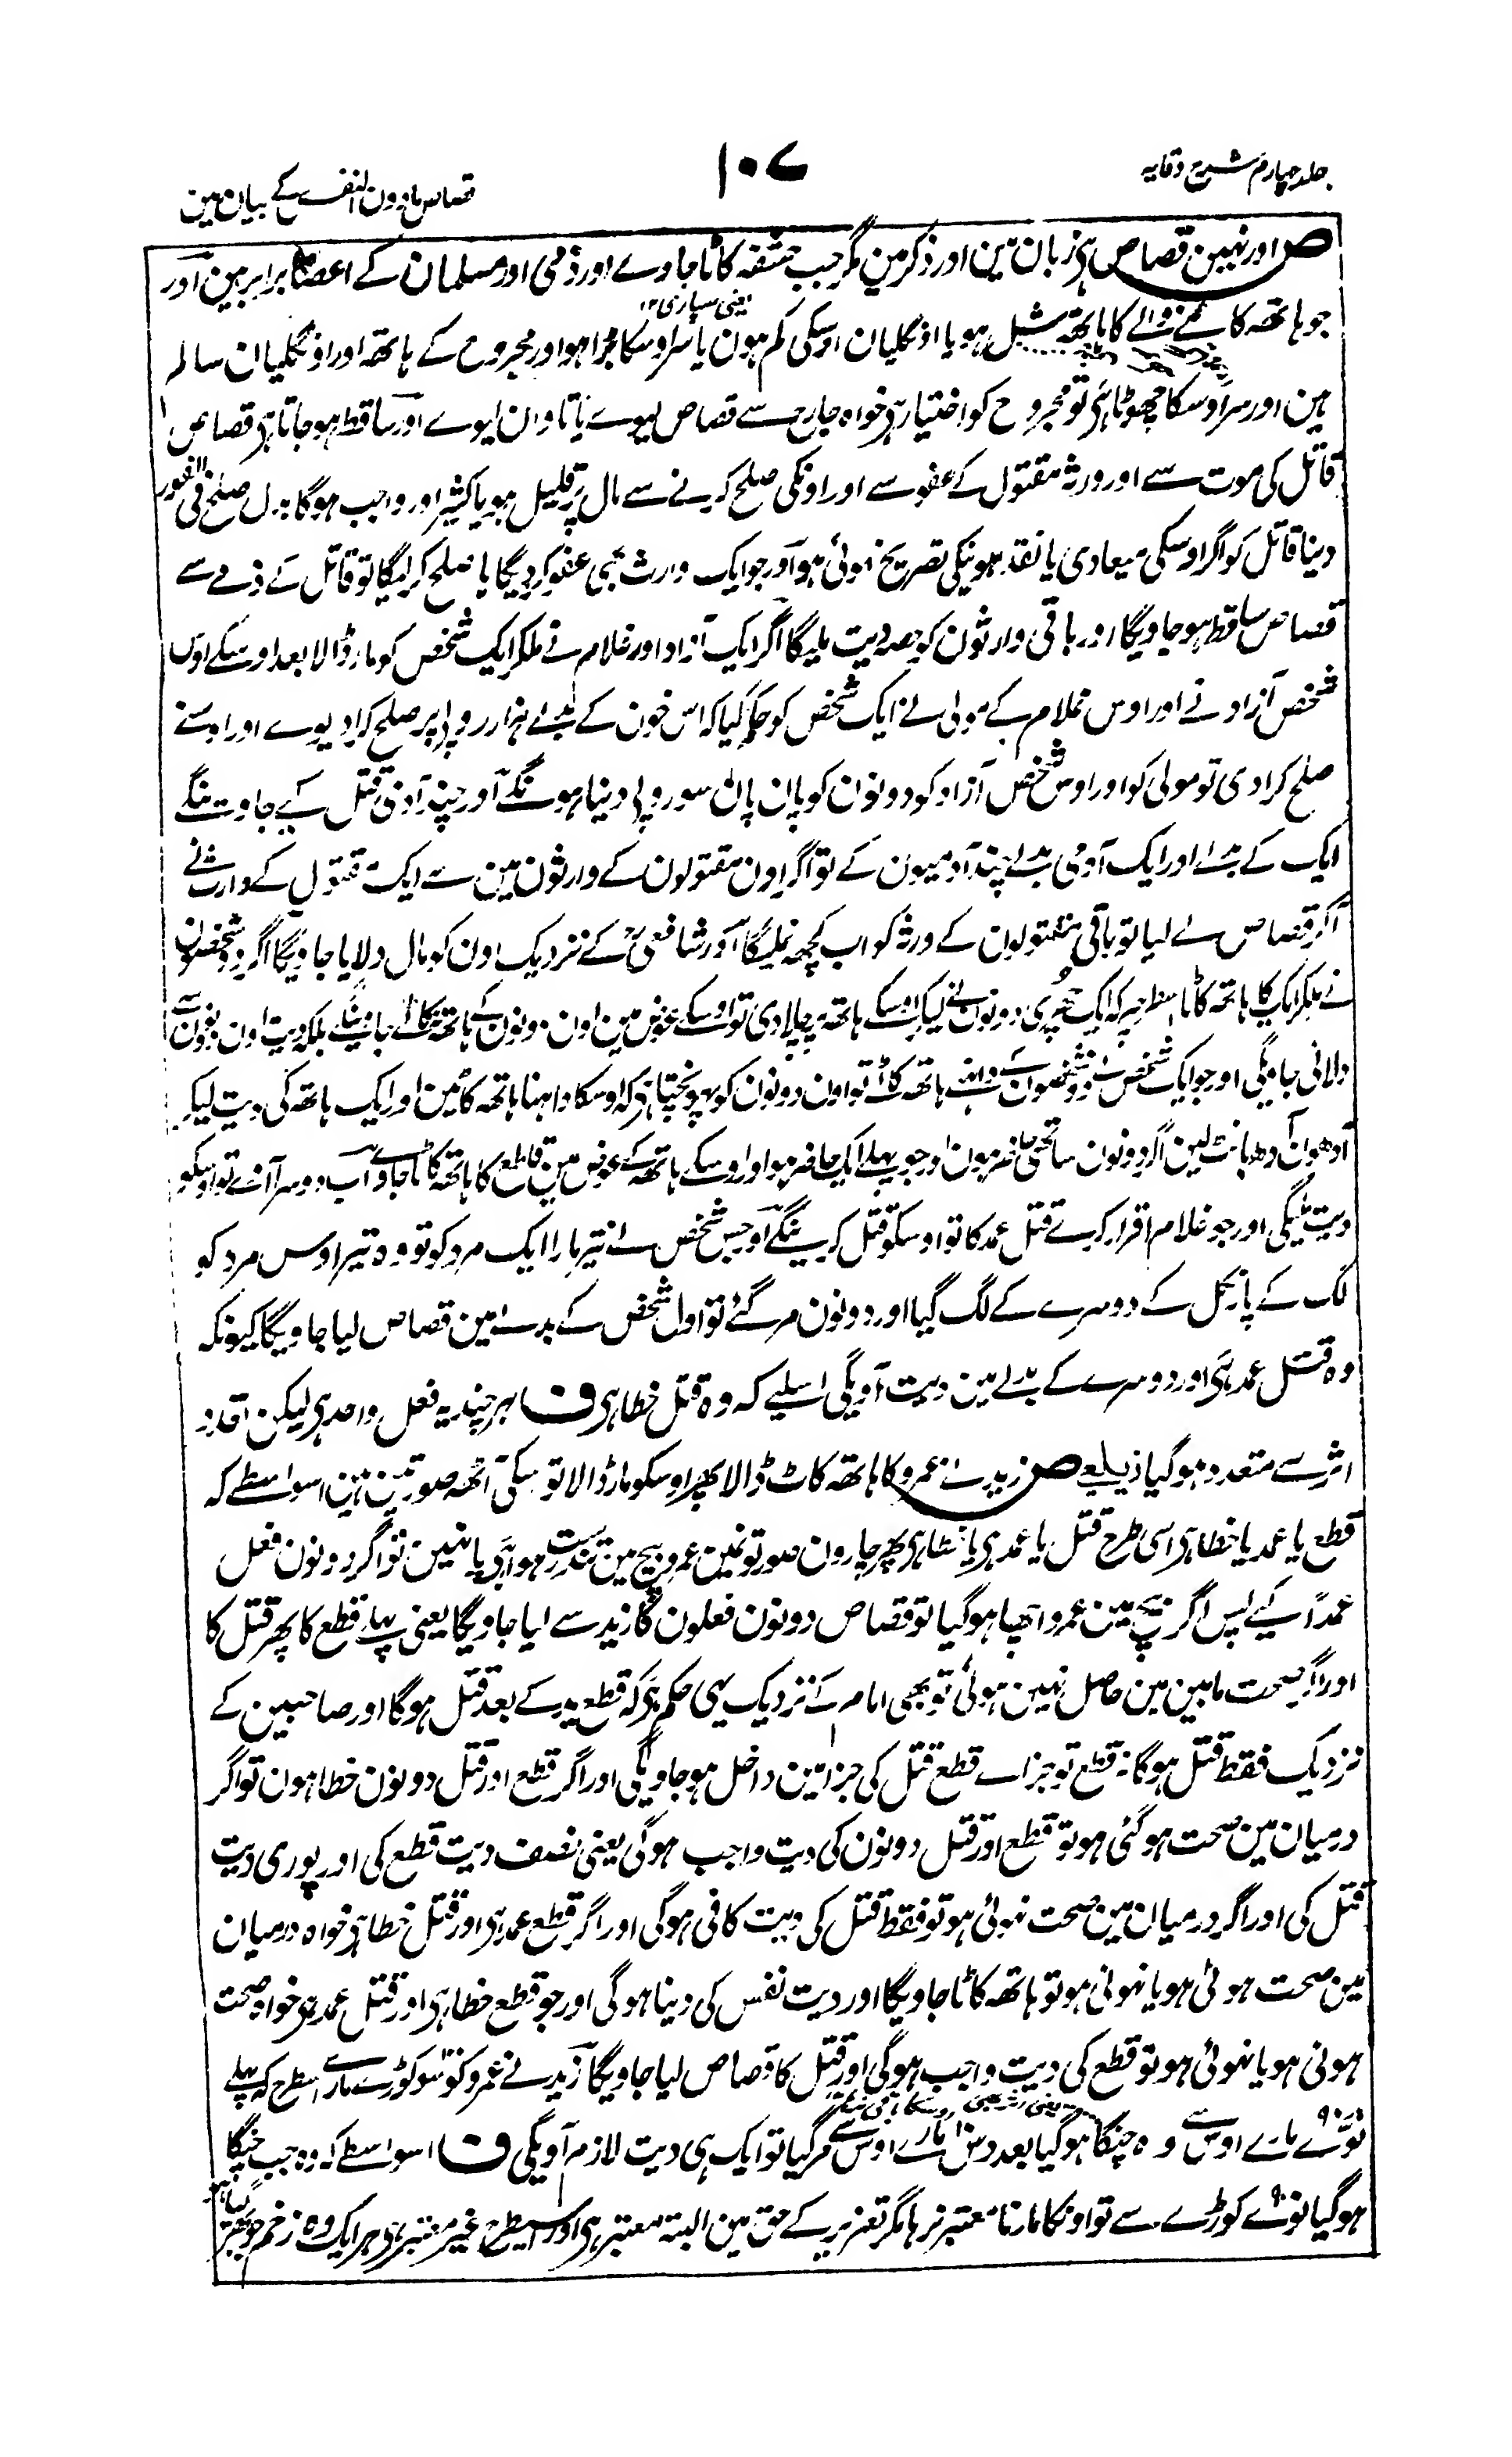 جلد چہارم شرح وقایہ
۱۰۷
قصاص مادون النفس کے بیان مین
ص اور نہین قصاص ہی زبان مین اور ذکر مین مگر جب حشفہ کاٹا جاوے اور ذمی اور مسلمان کے اعضا برابر ہین اور
یعنی سپاری ۱۲
جو ہاتھ کاٹنے والے کا ہاتھ شل ہو یا اونگلیان اوسکی کم ہون یا سر اوسکا بڑا ہو اور مجروح کے ہاتھ اور اونگلیان سالم
ہین اور سر اوسکا چھوٹا ہی تو مجروح کو اختیار ہی خواہ جارح سے قصاص لیوے یا تاوان لیوے اور ساقط ہو جاتا ہی قصاص
قاتل کی موت سے اور ورثہ مقتول کے عفو سے اور اونکی صلح کرنے سے مال پر قلیل ہو یا کثیر اور واجب ہوگا بدل صلح فی الفور
دینا قاتل کو اگر اوسکی میعادی یا نقد ہونیکی تصریح نہوئی ہو اور جو ایک وارث بھی عفو کردیگا یا صلح کرلیگا تو قاتل کے ذمے سے
قصاص ساقط ہو جاویگا اور باقی وارثون کو حصہ دیت ملیگا اگر ایک آزاد اور غلام نے ملکر ایک شخص کو مار ڈالا بعد اوسکے اوس
شخص آزاد نے اور اوس غلام کے مولی نے ایک شخص کو حکم کیا کہ اس خون کے بدلے ہزار روپی پر صلح کرا دیوے اور اوسنے
صلح کرا دی تو مولی کو اور اوس شخص آزاد کو دونون کو پان پان سو روپی دینا ہونگے اور چند آدمی قتل کیے جاوینگے
ایک کے بدلے اور ایک آدمی بدلے چند آدمیون کے تو اگر اون مقتولون کے وارثون مین سے ایک مقتول کے وارث نے
آکر قصاص لے لیا تو باقی مقتولون کے ورثہ کو اب کچھ نملیگا اور شافعی کے نزدیک اون کو مال دلایا جاویگا اگر دو شخصون
نے ملکر ایک کا ہاتھ کاٹا اسطرح پر کہ ایک چھری دونون نے لیکر اوسکے ہاتھ پر چلادی تو اوسکے عوض مین اون دونون کے ہاتھ نکاٹے جاوینگے بلکہ دیت اون دونون سے
دلائی جاویگی اور جو ایک شخص نے دو شخصون کے داہنے ہاتھ کاٹے تو اون دونون کو پہونچتا ہی کہ اوسکا داہنا ہاتھ کاٹین اور ایک ہاتھ کی دیت لیکر
آدھون آدھ بانٹ لین اگر دونون ساتھ ہی حاضر ہون اور جو پہلے ایک حاضر ہوا اور اوسکے ہاتھ کے عوض مین قاطع کا ہاتھ کاٹا جاوے اب دوسرا آئے تو اوسکو
دیت ملیگی اور جو غلام اقرار کرے قتل عمد کا تو اوسکو قتل کرینگے اور جس شخص نے تیر مارا ایک مرد کو تو وہ تیر اوس مرد کو
لگ کے پار نکل کے دوسرے کے لگ گیا اور دونون مر گئے تو اول شخص کے بدلے مین قصاص لیا جاویگا کیونکہ
وہ قتل عمد ہی اور دوسرے کے بدلے مین دیت آویگی اسلیے کہ وہ قتل خطا ہی ف ہر چند یہ فعل واحد ہی لیکن تعدد
اثر سے متعدد ہوگیا زیلعی ص زید نے عمرو کا ہاتھ کاٹ ڈالا پھر اوسکو مار ڈالا تو اسکی آٹھ صورتین ہین اسواسطے کہ
قطع یا عمد یا خطا ہی اسی طرح قتل یا عمد ہی یا خطا ہی پھر چارون صورتونمین عمرو بیچ مین تندرست ہوا ہی یا نہین تو اگر دونون فعل
عمداً کیے پس اگر بیچ مین عمرو اچھا ہوگیا تو قصاص دونون فعلون کا زید سے لیا جاویگا یعنی پہلے قطع کا پھر قتل کا
اور اگر صحت مابین مین حاصل نہین ہوئی تو بھی امام کے نزدیک یہی حکم ہی کہ قطع ید کے بعد قتل ہوگا اور صاحبین کے
نزدیک فقط قتل ہوگا نہ قطع تو جزاے قطع قتل کی جزا مین داخل ہو جاویگی اور اگر قطع اور قتل دونون خطا ہون تو اگر
درمیان مین صحت ہوگئی ہو تو قطع اور قتل دونون کی دیت واجب ہوگی یعنی نصف دیت قطع کی اور پوری دیت
قتل کی اور اگر درمیان مین صحت نہوئی ہو تو فقط قتل کی دیت کافی ہوگی اور اگر قطع عمد ہی اور قتل خطا ہی خواہ درمیان
مین صحت ہوئی ہو یا نہوئی ہو تو ہاتھ کاٹا جاویگا اور دیت نفس کی دینا ہوگی اور جو قطع خطا ہی اور قتل عمد ہی خواہ صحت
ہوئی ہو یا نہوئی ہو تو قطع کی دیت واجب ہوگی اور قتل کا قصاص لیا جاویگا زید نے عمرو کو سو کوڑے مارے اسطرح کہ پہلے
نوے مارے اوس سے وہ چنگا ہوگیا بعد دس مارے اوس سے مر گیا تو ایک ہی دیت لازم آویگی ف اسواسطے کہ وہ جب چنگا
ہوگیا نوے کوڑے سے تو اونکا مارنا معتبر نرہا مگر تعزیر کے حق مین البتہ معتبر ہی اور اسیطرح غیر معتبر ہی ہر ایک وہ زخم جو بھر گیا ہو